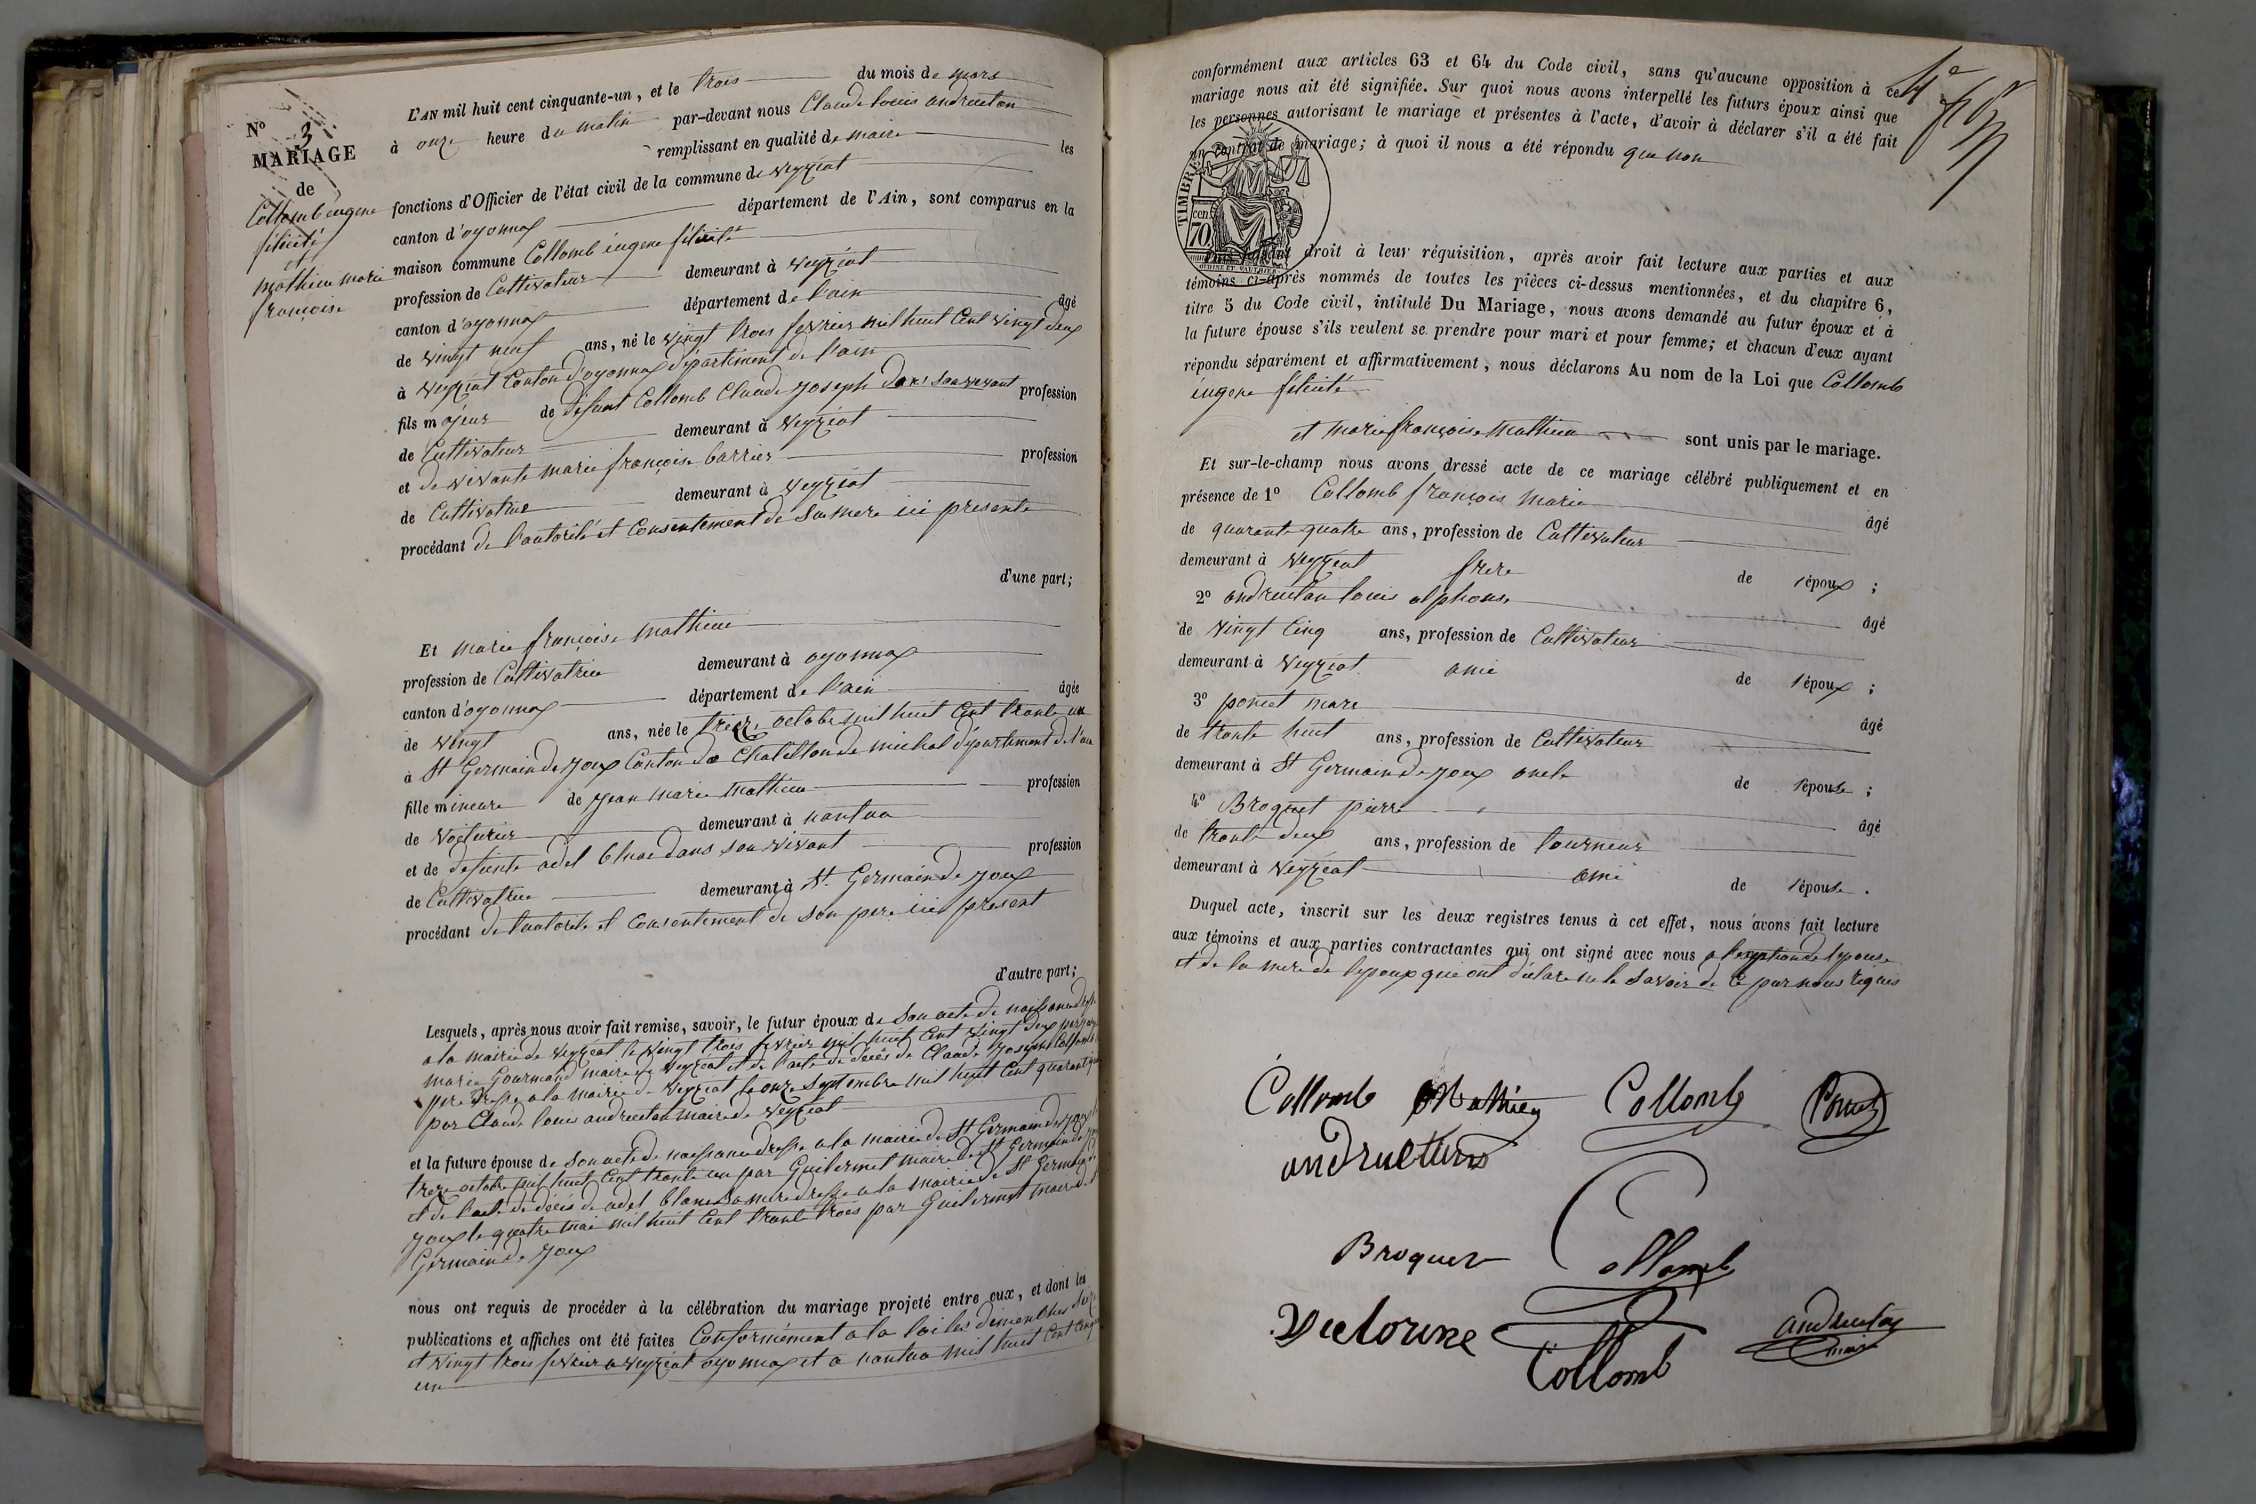 N° 3
MARIAGE
de
Collomb eugene
félicité
et
mathieu marie
françoise
L'AN mil huit cent cinquante-un, et le trois du mois de mars
à onze heure du matin par-devant nous Claude louis andruetan
remplissant en qualité de maire les
fonctions d'Officier de l'état civil de la commune de veyziat
canton d'oyonnax département de l'Ain, sont comparus en la
maison commune Collomb eugene félicité
profession de Cultivateur demeurant à veyziat
canton d'oyonnax département de l'ain âgé
de vingt neuf ans, né le vingt trois fevrier mil huit Cent vingt deux
à veyziat Canton d'oyonnax département de l'ain
fils majeur de défunt Collomb Claude joseph dans son vivant profession
de Cultivateur demeurant à veyziat
et de vivante marie françoise barrier profession
de Cultivatrice demeurant à veyziat
procédant de l'autorité et Consentement de Sa mere ici presente
d'une part;
Et marie françoise mathieu
profession de Cultivatrice demeurant à oyonnax
canton d'oyonnax département de l'ain âgée
de vingt ans, née le treize octobre mil huit Cent trente un
à St Germain de joux Canton de Chatillon de michal département de l'ain
fille mineure de jean marie mathieu profession
de voiturier demeurant à nantua
et de defunte adel blanc dans son vivant profession
de Cultivatrice demeurant à St Germain de joux
procédant de l'autorité et Consentement de son pere ici present
d'autre part;
Lesquels, après nous avoir fait remise, savoir, le futur époux de Son acte de naissance dressé
a la mairie de veyziat le vingt trois fevrier mil huit Cent vingt deux par
marie Gourmand maire de veyziat et de l'acte de décès de Claude joseph Collomb
pere dressé a la mairie de veyziat le onze Septembre mil huit Cent quarante
par Claude louis andruetan maire de veyziat
et la future épouse de Son acte de naissance dressé a la mairie de St Germain de joux
treze octobre mil huit Cent trente un par Guilermet maire de St Germain de
et de l'acte de décès de adel blanc Sa mere dressé a la mairie de St Germain de
joux le quatre mai mil huit Cent trente trois par Guilermet maire de
Germain de joux
nous ont requis de procéder à la célébration du mariage projeté entre eux, et dont les
publications et affiches ont été faites Conformément a la loi les dimenches
et vingt trois fevrier a veyziat oyonnax et a nantua mil huit Cent cinquante
un
conformément aux articles 63 et 64 du Code civil, sans qu'aucune opposition à ce
mariage nous ait été signifiée. Sur quoi nous avons interpellé les futurs époux ainsi que
les personnes autorisant le mariage et présentes à l'acte, d'avoir à déclarer s'il a été fait
un contrat de mariage; à quoi il nous a été répondu que non
TIMBRE
70 cen.
Puis faisant droit à leur réquisition, après avoir fait lecture aux parties et aux
témoins ci-après nommés de toutes les pièces ci-dessus mentionnées, et du chapitre 6,
titre 5 du Code civil, intitulé Du Mariage, nous avons demandé au futur époux et à
la future épouse s'ils veulent se prendre pour mari et pour femme; et chacun d'eux ayant
répondu séparément et affirmativement, nous déclarons Au nom de la Loi que Collomb
eugene félicité
et marie françoise Mathieu sont unis par le mariage.
Et sur-le-champ nous avons dressé acte de ce mariage célébré publiquement et en
présence de 1° Collomb françois Marie âgé
de quarante quatre ans, profession de Cultivateur
demeurant à veyziat frere de l'époux ;
2° andruetan louis alphonse âgé
de vingt Cinq ans, profession de Cultivateur
demeurant à veyziat ami de l'époux ;
3° poncet marc âgé
de trente huit ans, profession de Cultivateur
demeurant à St Germain de joux oncle de l'épouse ;
4° Broquet pierre âgé
de trente deux ans, profession de tourneur
demeurant à veyziat ami de l'épouse .
Duquel acte, inscrit sur les deux registres tenus à cet effet, nous avons fait lecture
aux témoins et aux parties contractantes qui ont signé avec nous a l'exption de l'épouse
et de la mere de l'epoux qui ont déclaré ne le Savoir de Ce par nous réquis
Collomb Mathieu Collomb Poncet
Broquet Collomb
Collomb andruetan
maire